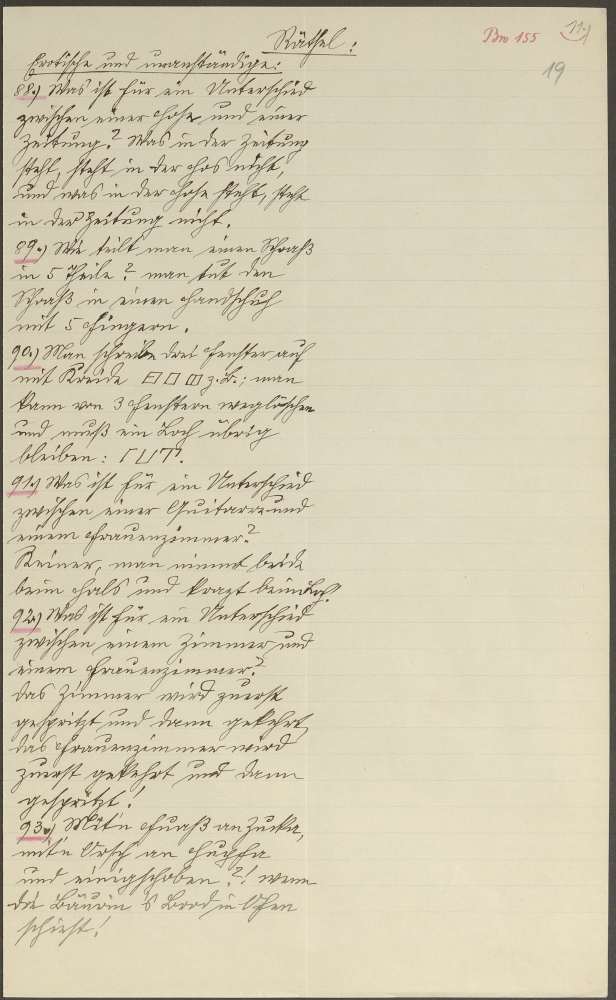 Räthsel:
Bro 155
11.)
19
Erotische und unanständige:
88.) Was ist für ein Unterschied
zwischen einer Hose und einer
Zeitung? Was in der Zeitung
steht, steht in der Hos nicht,
und was in der Hose steht, steht
in der Zeitung nicht.
89.) Wie teilt man einen Schaß
in 5 Theile? man tut den
Schaaß in einen Handschuh
mit 5 Fingern.
90.) Man schreibe drei Fenster auf
mit Kreide z.B.; man
kann von 3 Fenstern weglöschen
und muß ein Loch übrig
bleiben:
91.) Was ist für ein Unterschied
zwischen einer Guitarre und
einem Frauenzimmer?
Keiner, man nimmt beide
beim Hals und kragt beim Loch!
92.) Was ist für ein Unterschied
zwischen einem Zimmer und
einem Frauenzimmer?
das Zimmer wird zuerst
gespritzt und dann gekehrt,
das Frauenzimmer wird
zuerst gekehrt und dann
gespritzt!
93.) Mit'n Fuaß an Zucka,
mit'n Orsch an
und einigschoben?! wenn
die Bäurin 's Brod in Ofen
schiest!